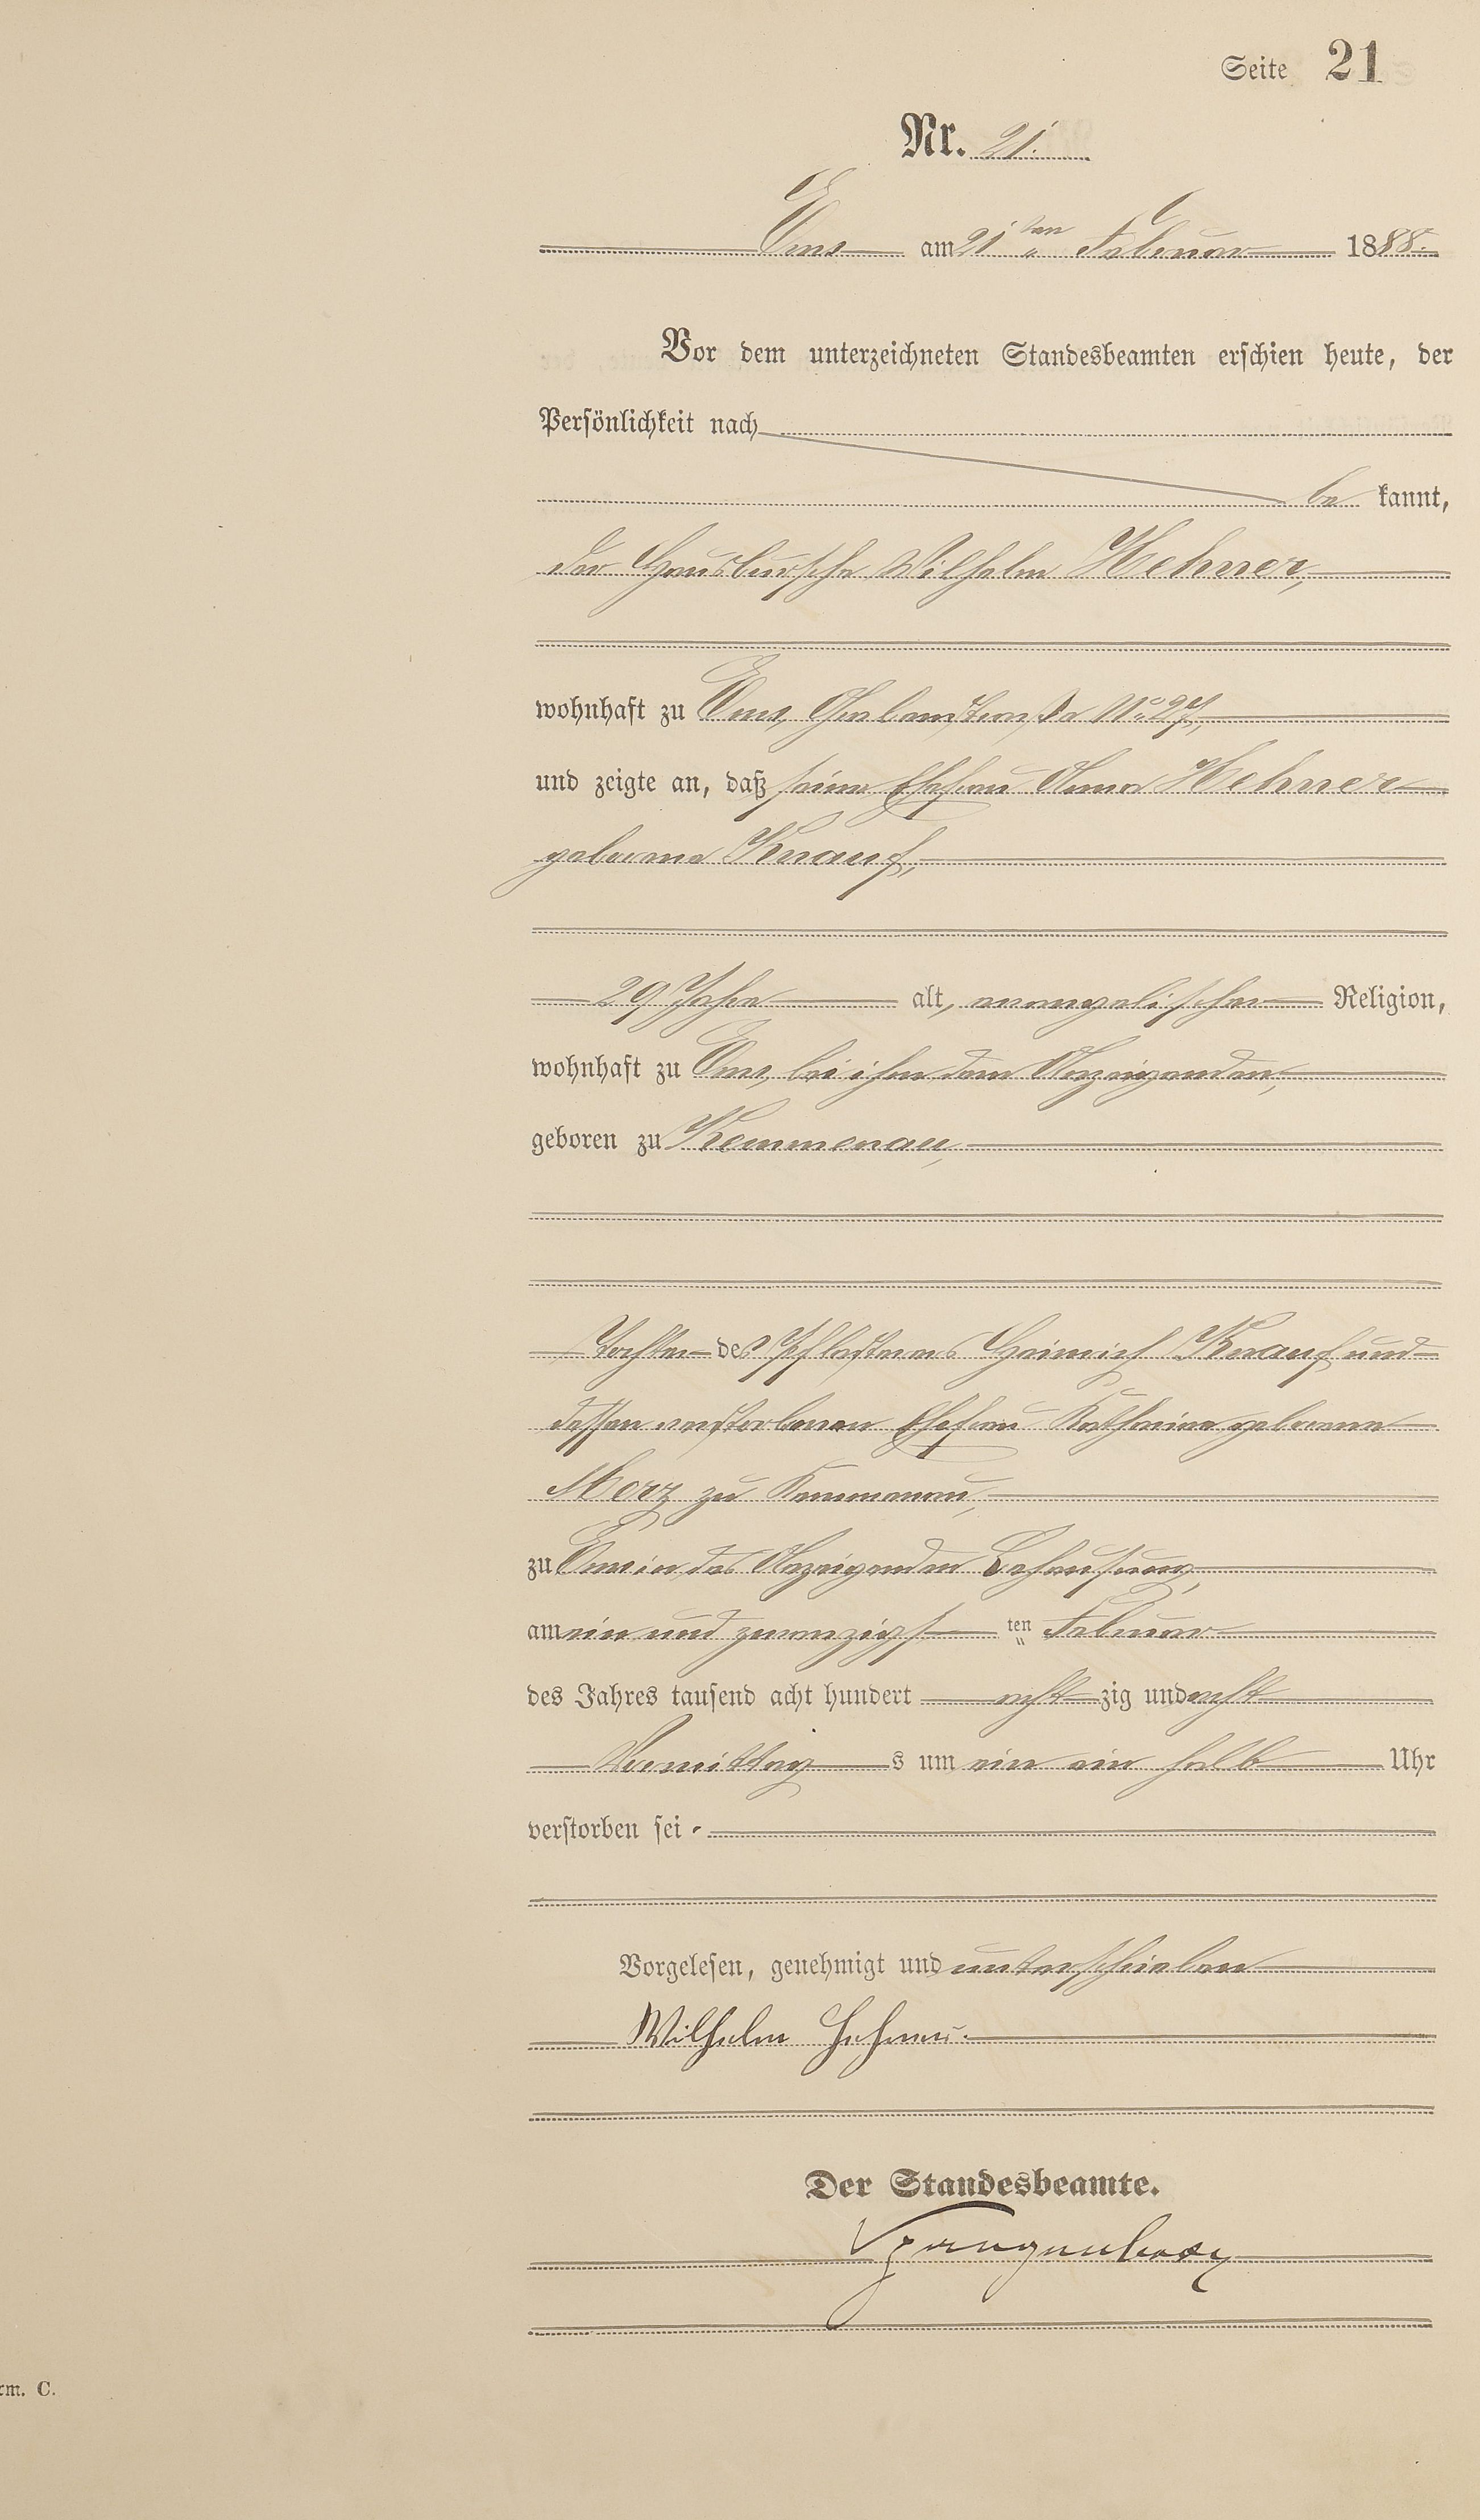 Seite 21
Nr. 21.
Ems am 21ten Februar 1888.
Vor dem unterzeichneten Standesbeamten erschien heute, der
Persönlichkeit nach
be kannt,
der Hausbursche Wilhelm Hehner,
wohnhaft zu Ems, No 27,
und zeigte an, daß seine Ehefrau Anna Hehner
geborene Knauf,
29 Jahre alt, evangelischer Religion,
wohnhaft zu Ems, bei ihm dem Anzeigenden,
geboren zu Kemmenau,
Tochter des Pflasterers Heinrich Knauf und
dessen verstorbenen Ehefrau Katharina geborene
Merz zu Kemmenau,
zu Ems in des Anzeigenden Behausung,
am ein und zwanzigsten Februar
des Jahres tausend acht hundert achtzig und acht
Vormittags um ein ein halb Uhr
verstorben sei.
Vorgelesen, genehmigt und unterschrieben
Wilhelm Hehner.
Der Standesbeamte.
rm. C.